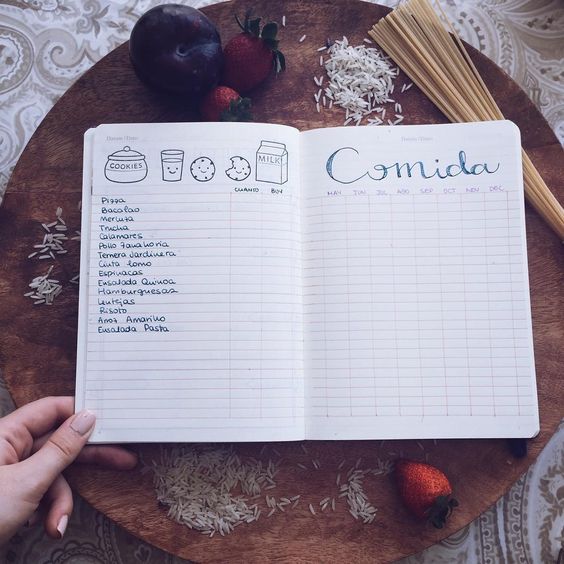 COOKIES
MILK
CUANTO BUY
Pizza
Bacalao
Merluza
Trucha
Calamares
Pollo Zanahoria
Ternera Jardinera
Cinta lomo
Espinacas
Ensalada Quinoa
Hamburguesas
Lentejas
Risoto
Arroz Amarillo
Ensalada Pasta
Comida
MAY JUN JUL AGO SEP OCT NOV DEC